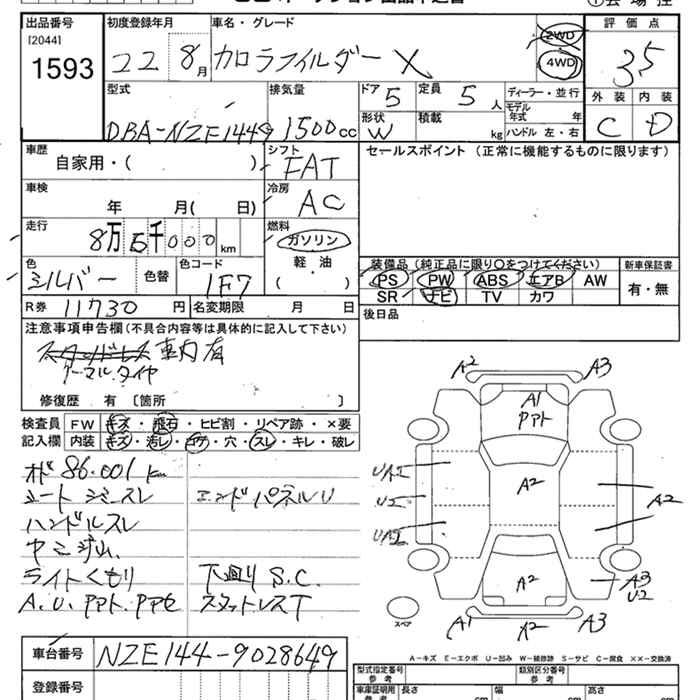 出品番号
[2044]
1593
初度登録年月
22 8月
車名・グレード
カロラフィルダー X
2WD
4WD
評価点
3.5
外装 内装
C D
型式
DBA-NZE144G
排気量
1500cc
ドア
5
定員
5人
形状
W
積載
kg
ディーラー・並行
モデル年式 年
ハンドル 左・右
車歴
自家用・( )
シフト
FAT
セールスポイント (正常に機能するものに限ります)
車検
年 月( 日)
冷房
AC
走行
8万6千000km
燃料
ガソリン
軽・油
( )
色
シルバー
色替
色コード
1F7
装備品(純正品に限り〇をつけてください)
PS PW ABS エアB AW
SR ナビ TV カワ
新車保証書
有・無
R券 11730円
名変期限 月 日
後日品
注意事項申告欄(不具合内容等は具体的に記入して下さい)
スタッドレス車内有
ノーマルタイヤ
修復歴 有〔箇所 〕
検査員記入欄
FW キズ・飛石・ヒビ割・リペア跡・×要
内装 キズ・汚レ・コゲ・穴・スレ・キレ・破レ
オド 86.001km
シートシミスレ
エンドパネルU
ハンドルスレ
ライトくもり
下廻りS.C.
A.U.PPt.PPセ
スタットレスT
A2 A3
A1
PPt
UA1
A2
U2
A2
A2
A3
U2
A1 X2 A3
スペア
A-キズ E-エクボ U-凹み W-補修跡 S-サビ C-腐食 ××-交換済
車台番号 NZE144-9028649
登録番号
型式指定番号
類別区分番号
車庫証明用
長さ cm 幅 cm 高さ cm